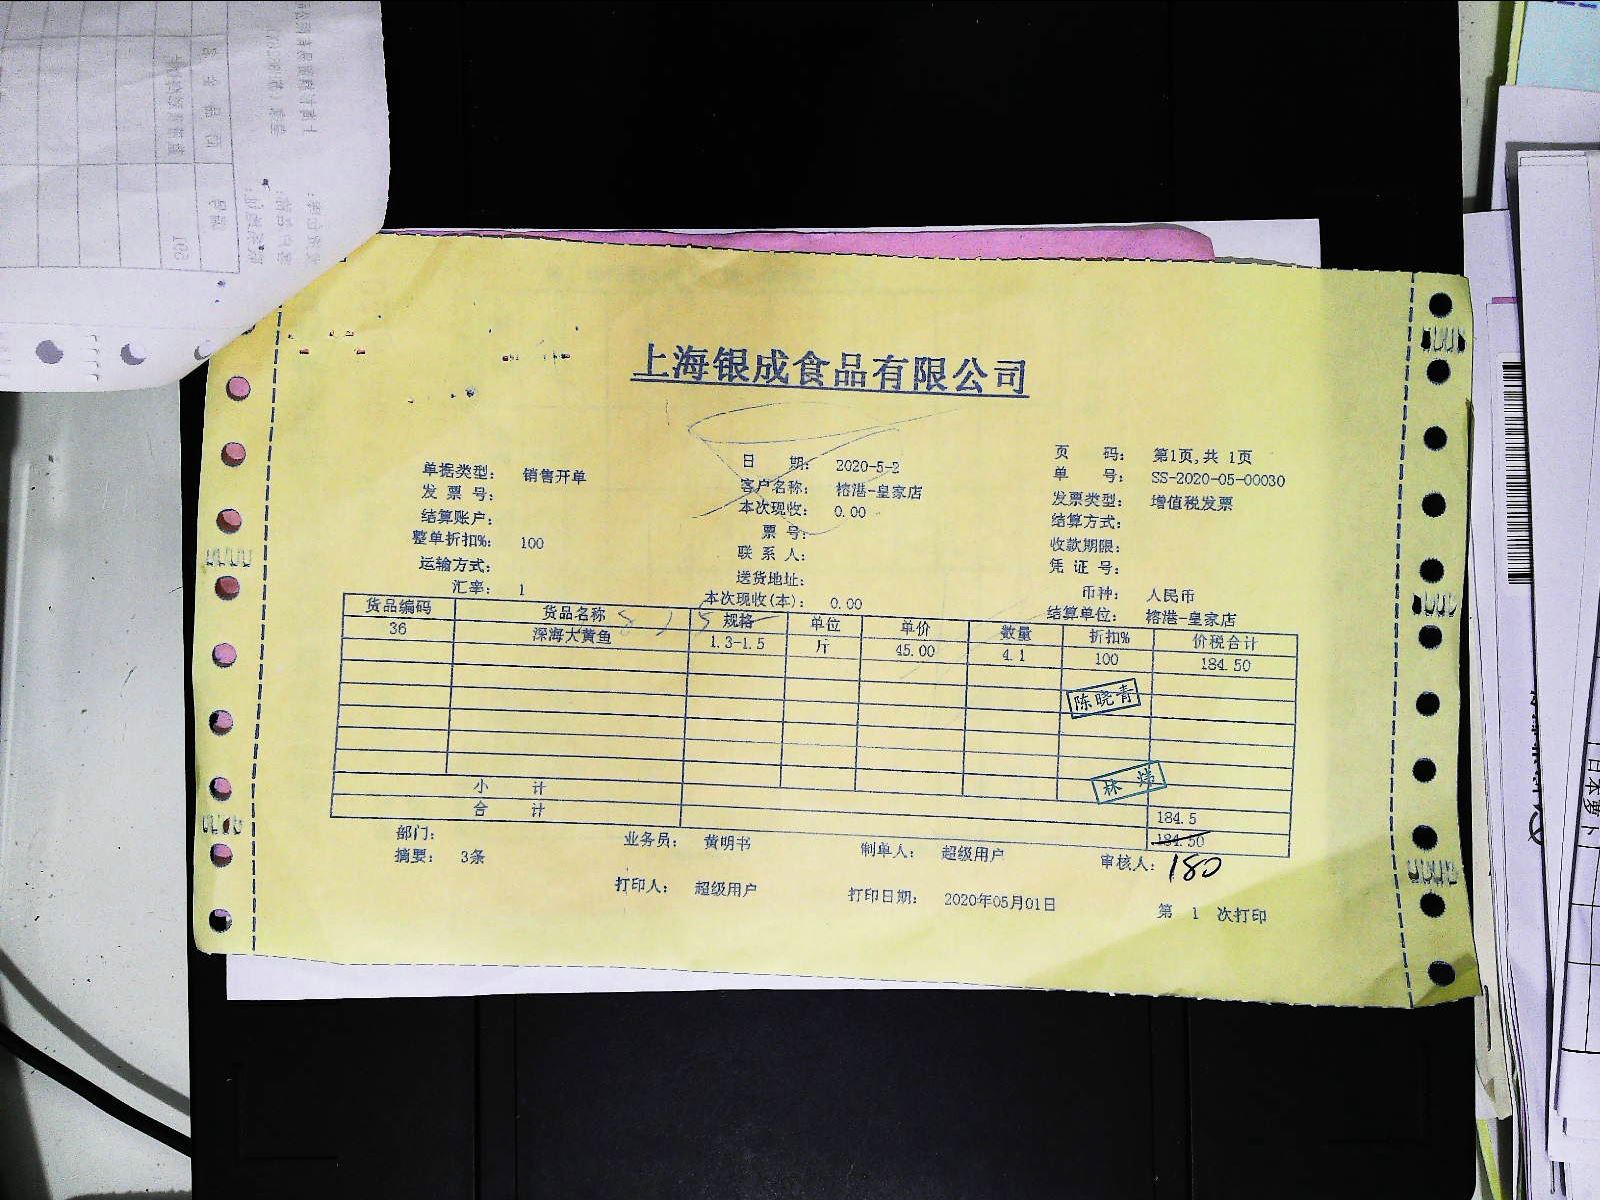 上海银成食品有限公司
单据类型: 销售开单 日 期: 2020-5-2 页 码: 第1页,共 1页
发 票 号: 客户名称: 榕港-皇家店 单 号: SS-2020-05-00030
结算账户: 本次现收: 0.00 发票类型: 增值税发票
整单折扣%: 100 票 号: 结算方式:
运输方式: 联 系 人: 收款期限:
汇率: 1 送货地址: 凭 证 号:
本次现收(本): 0.00 币种: 人民币
结算单位: 榕港-皇家店
货品编码 货品名称 规格 单位 单价 数量 折扣% 价税合计
36 深海大黄鱼 1.3-1.5 斤 45.00 4.1 100 184.50
陈晓青
林
小 计 184.5
合 计 184.50
部门: 业务员: 黄明书 制单人: 超级用户 审核人: 180
摘要: 3条
打印人: 超级用户 打印日期: 2020年05月01日 第 1 次打印